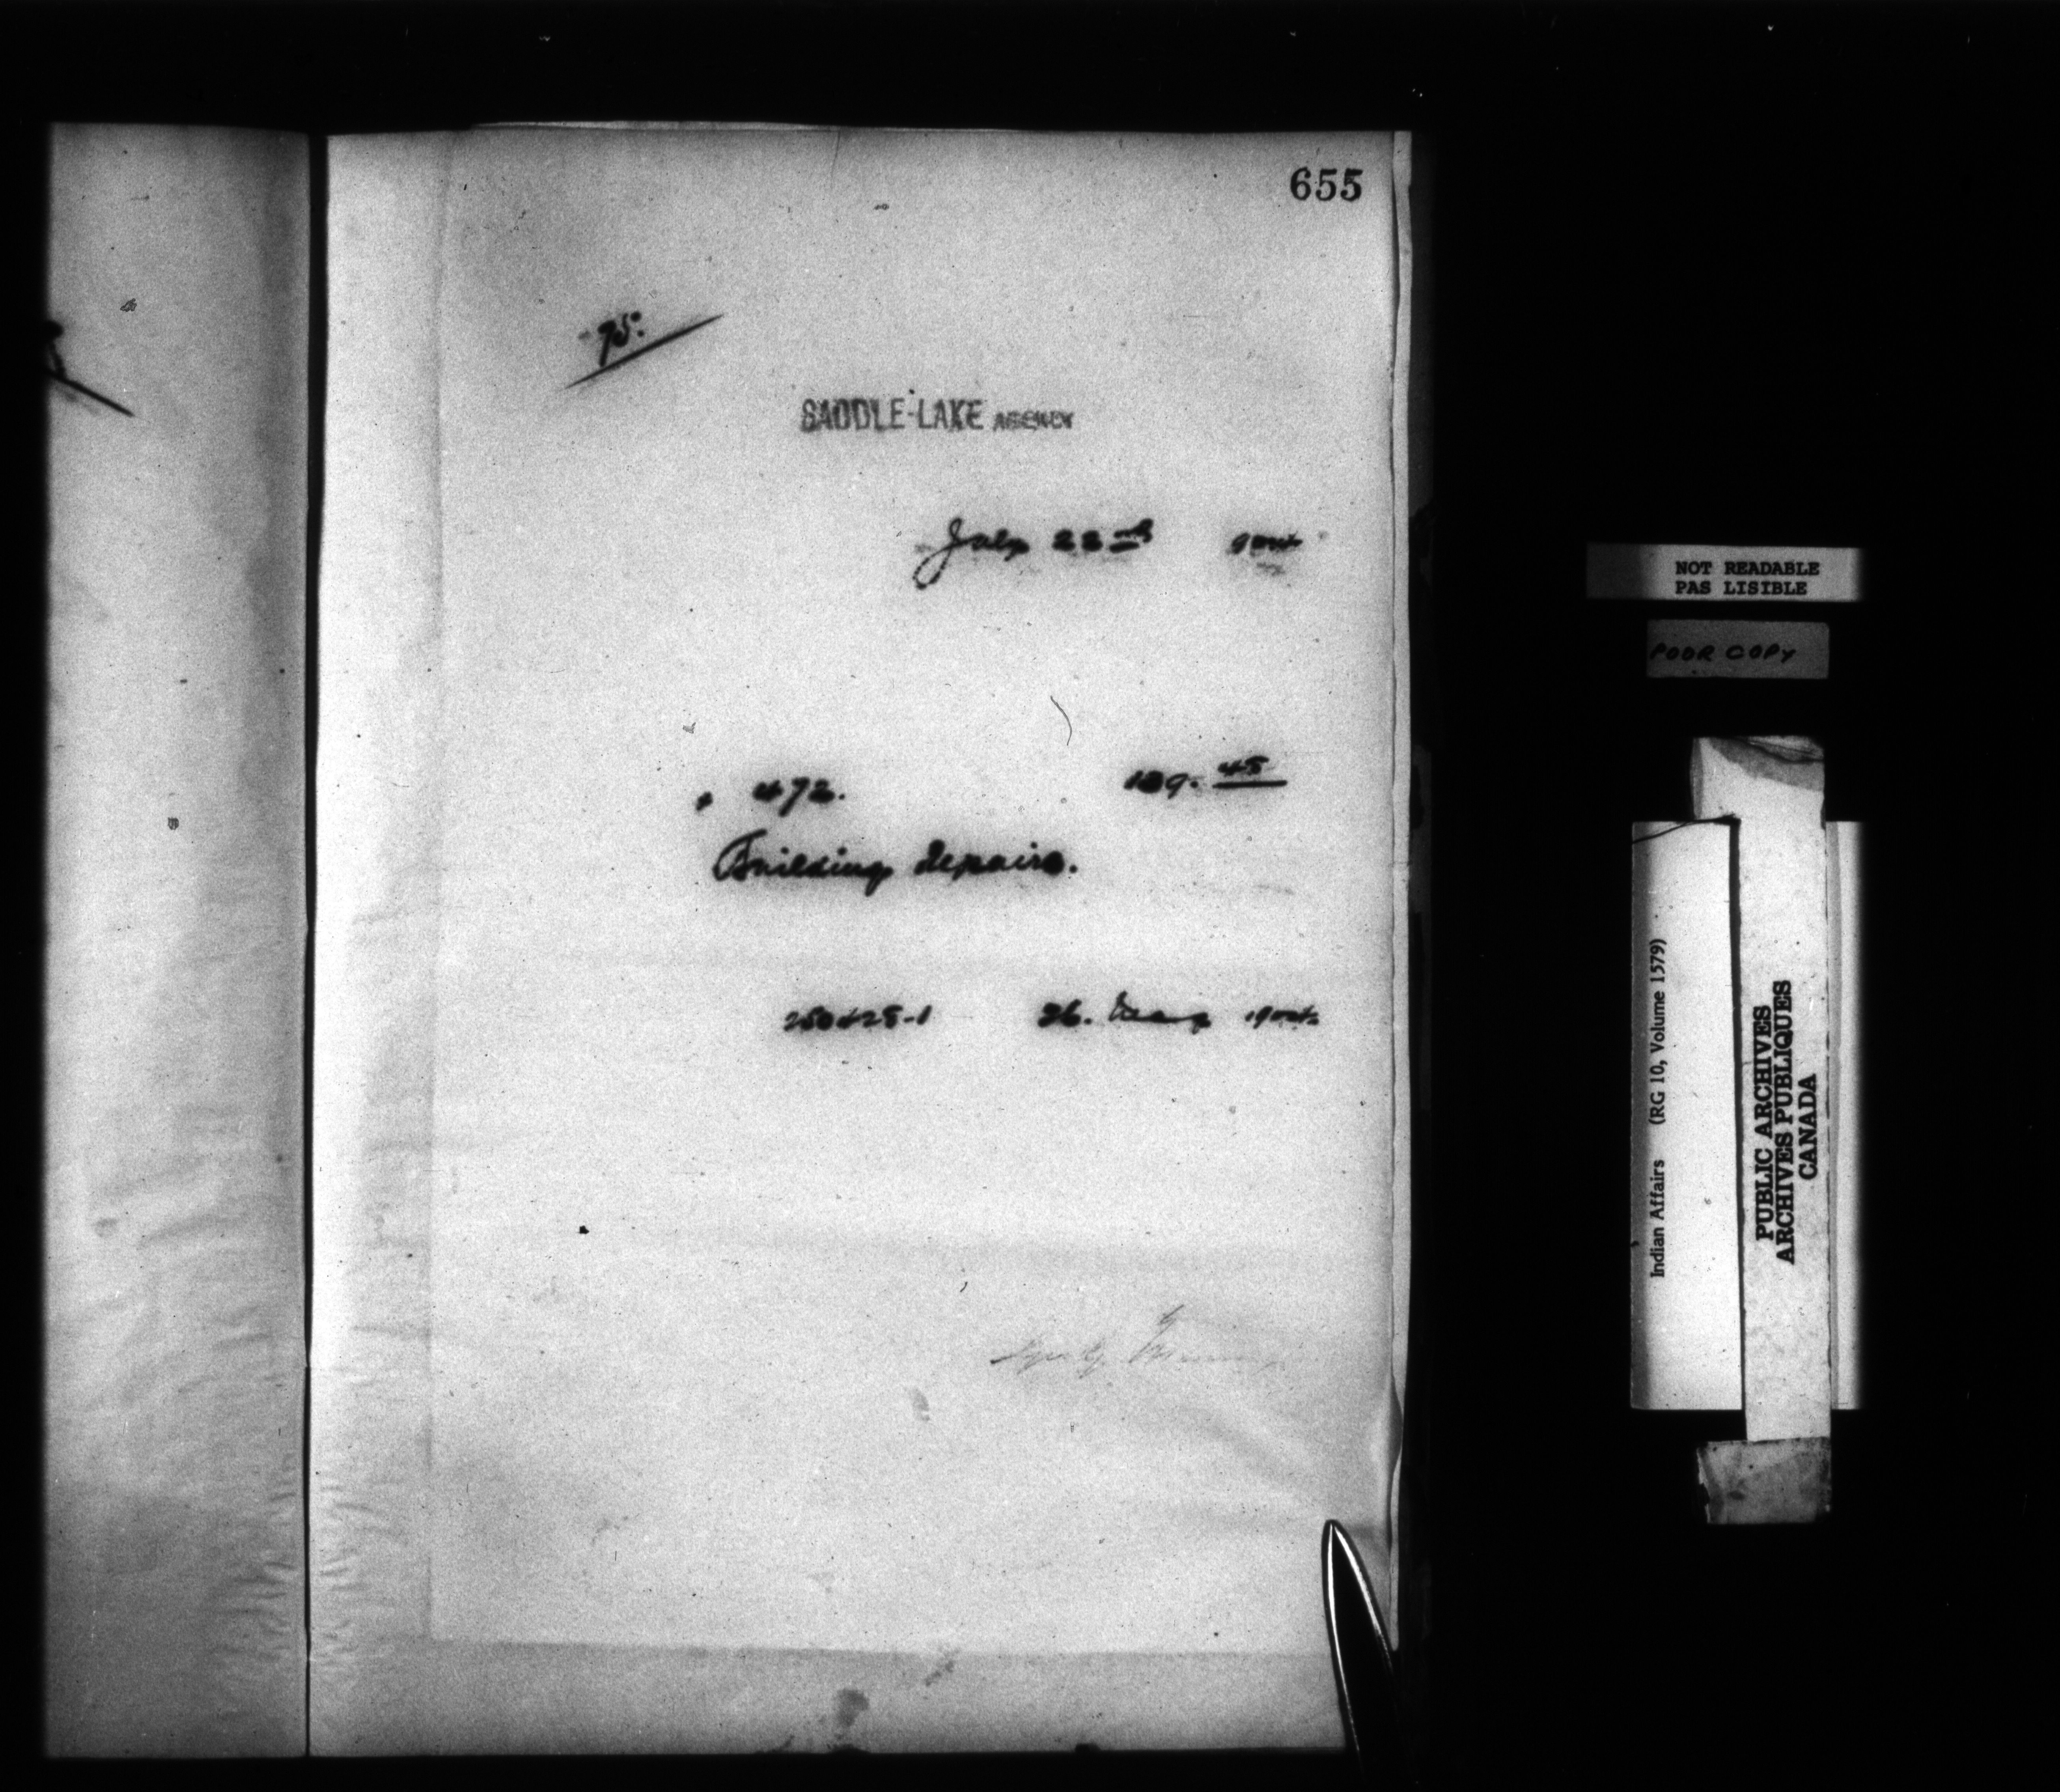 655
75.
SADDLE-LAKE AGENCY
July 22nd
472. 45
Building Repairs.
26. May
NOT READABLE
PAS LISIBLE
POOR COPY
Indian Affairs (RG 10, Volume 1579)
PUBLIC ARCHIVES
ARCHIVES PUBLIQUES
CANADA